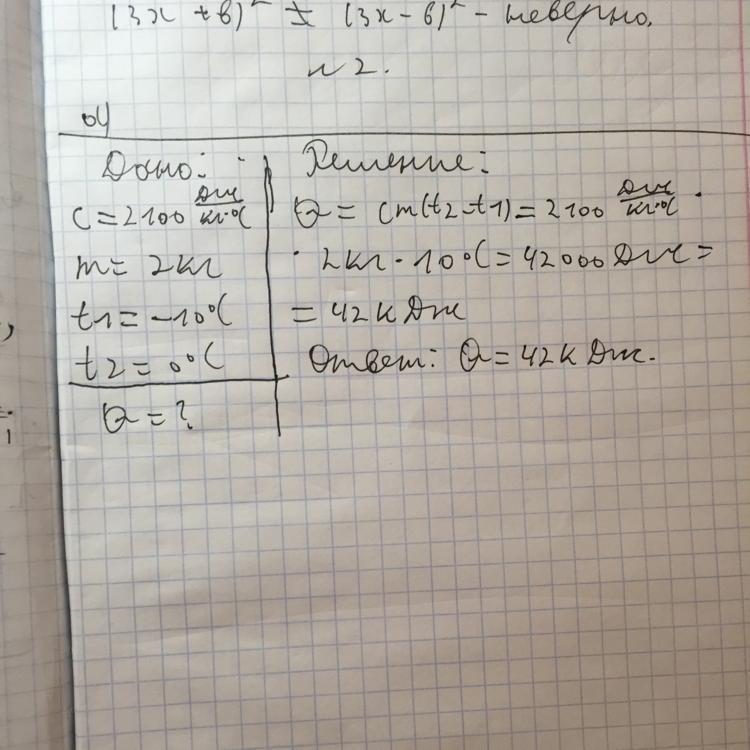 (3x + 6)² ≠ (3x - 6)² - неверно.
н 2.
Дано:
c = 2100 Дж/кг·°C
m = 2 кг
t1 = -10°C
t2 = 0°C
Q = ?
Решение:
Q = cm(t2 - t1) = 2100 Дж/кг·°C ·
· 2 кг · 10°C = 42000 Дж =
= 42 к Дж
Ответ: Q = 42 к Дж.